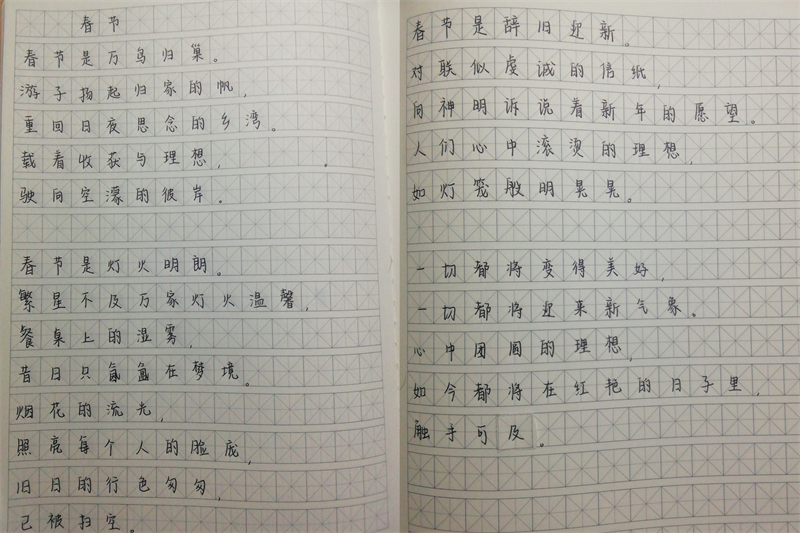 春节
春节是万鸟归巢。
游子扬起归家的帆，
重回日夜思念的乡湾。
载着收获与理想，
驶向空濛的彼岸。
春节是灯火明朗。
繁星不及万家灯火温馨，
餐桌上的湿雾，
昔日只氤氲在梦境。
烟花的流光，
照亮每个人的脸庞，
旧日的行色匆匆，
已被扫空。
春节是辞旧迎新。
对联似虔诚的信纸，
向神明诉说着新年的愿望。
人们心中滚烫的理想，
如灯笼般明晃晃。
一切都将变得美好，
一切都将迎来新气象。
心中团圆的理想，
如今都将在红艳的日子里，
触手可及。